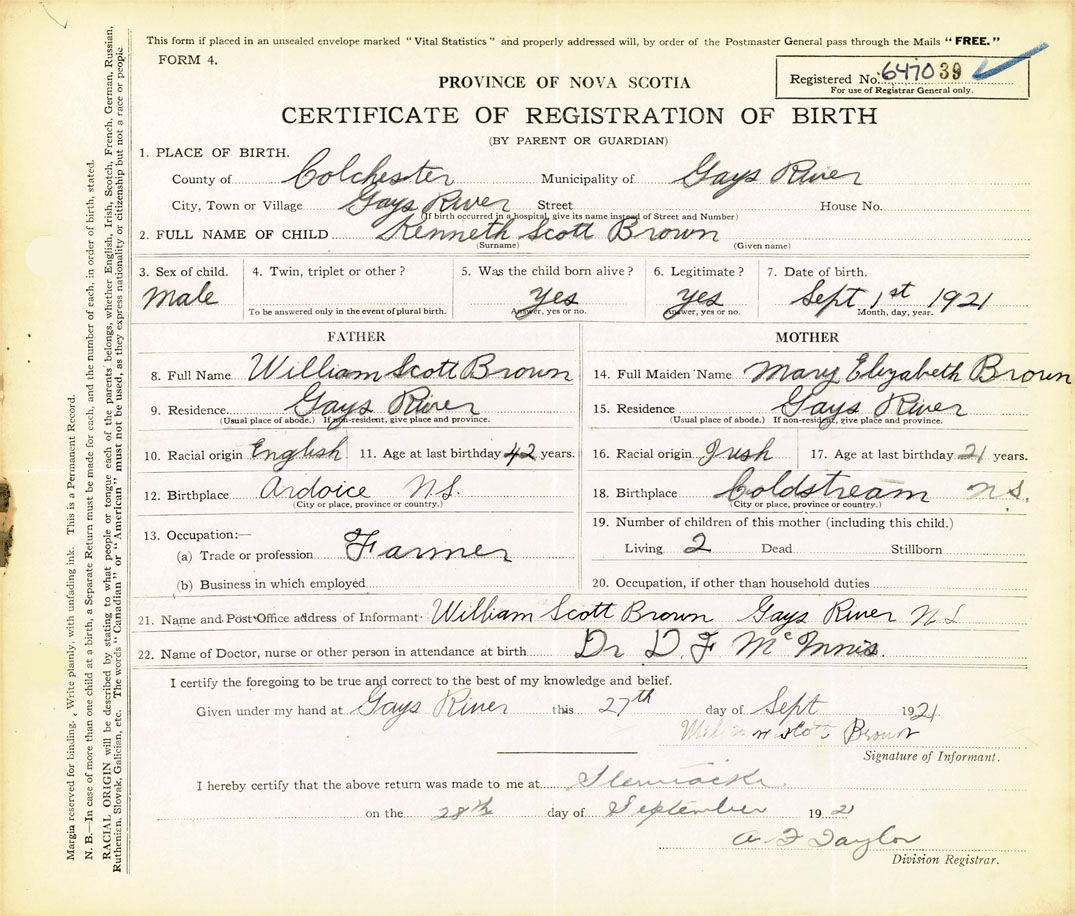 This form if placed in an unsealed envelope marked "Vital Statistics" and properly addressed will, by order of the Postmaster General pass through the Mails "FREE."
FORM 4.
Registered No. 647039
For use of Registrar General only.
PROVINCE OF NOVA SCOTIA
CERTIFICATE OF REGISTRATION OF BIRTH
(BY PARENT OR GUARDIAN)
1. PLACE OF BIRTH.
County of Colchester Municipality of Gays River
City, Town or Village Gays River Street House No.
(If birth occurred in a hospital, give its name instead of Street and Number)
2. FULL NAME OF CHILD Kenneth Scott Brown
(Surname) (Given name)
3. Sex of child. 4. Twin, triplet or other? 5. Was the child born alive? 6. Legitimate? 7. Date of birth.
Male Yes Yes Sept 1st 1921
To be answered only in the event of plural birth. Answer, yes or no. Answer, yes or no. Month, day, year.
FATHER MOTHER
8. Full Name William Scott Brown 14. Full Maiden Name Mary Elizabeth Brown
9. Residence. Gays River 15. Residence Gays River
(Usual place of abode.) If non-resident, give place and province. (Usual place of abode.) If non-resident, give place and province.
10. Racial origin English 11. Age at last birthday 42 years. 16. Racial origin Irish 17. Age at last birthday 21 years.
12. Birthplace Ardoice N.S. 18. Birthplace Coldstream N.S.
(City or place, province or country.) (City or place, province or country.)
19. Number of children of this mother (including this child.)
13. Occupation:—
(a) Trade or profession Farmer Living 2 Dead Stillborn
(b) Business in which employed 20. Occupation, if other than household duties
21. Name and Post Office address of Informant William Scott Brown Gays River N S
22. Name of Doctor, nurse or other person in attendance at birth Dr D. F McInnis.
I certify the foregoing to be true and correct to the best of my knowledge and belief.
Given under my hand at Gays River this 27th day of Sept 1921
Scott Brown
Signature of Informant.
I hereby certify that the above return was made to me at
on the 28th day of September 1921
A F Taylor
Division Registrar.
Margin reserved for binding. Write plainly, with unfading ink. This is a Permanent Record.
N. B.—In case of more than one child at a birth, a Separate Return must be made for each, and the number of each, in order of birth, stated.
RACIAL ORIGIN will be described by stating to what people or tongue each of the parents belongs, whether English, Irish, Scotch, French, German, Russian,
Ruthenian, Slovak, Galician, etc. The words "Canadian" or "American" must not be used, as they express nationality or citizenship but not a race or people.